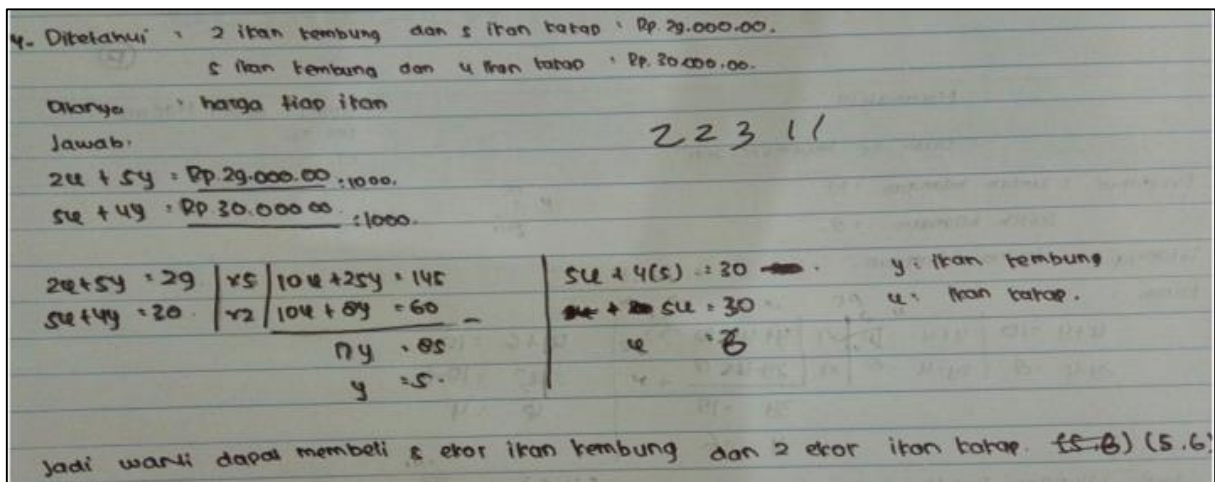 4. Diketahui : 2 ikan kembung dan 5 ikan kakap : Rp. 29.000.00.
5 ikan kembung dan 4 ikan kakap : Rp. 30.000.00.
Ditanya : harga tiap ikan
Jawab:
22311
2x + 5y = Rp. 29.000.00 :1000.
5x + 4y = Rp 30.000 00 :1000.
2x+5y = 29 | x5 | 10x + 25y = 145
5x+4y = 30 | x2 | 10x + 8y = 60 -
17y = 85
y = 5.
5x + 4(5) = 30
5x = 30
x = 6
y : ikan kembung
x : ikan kakap.
Jadi wanti dapat membeli 5 ekor ikan kembung dan 2 ekor ikan kakap. (5.6) (5.6)